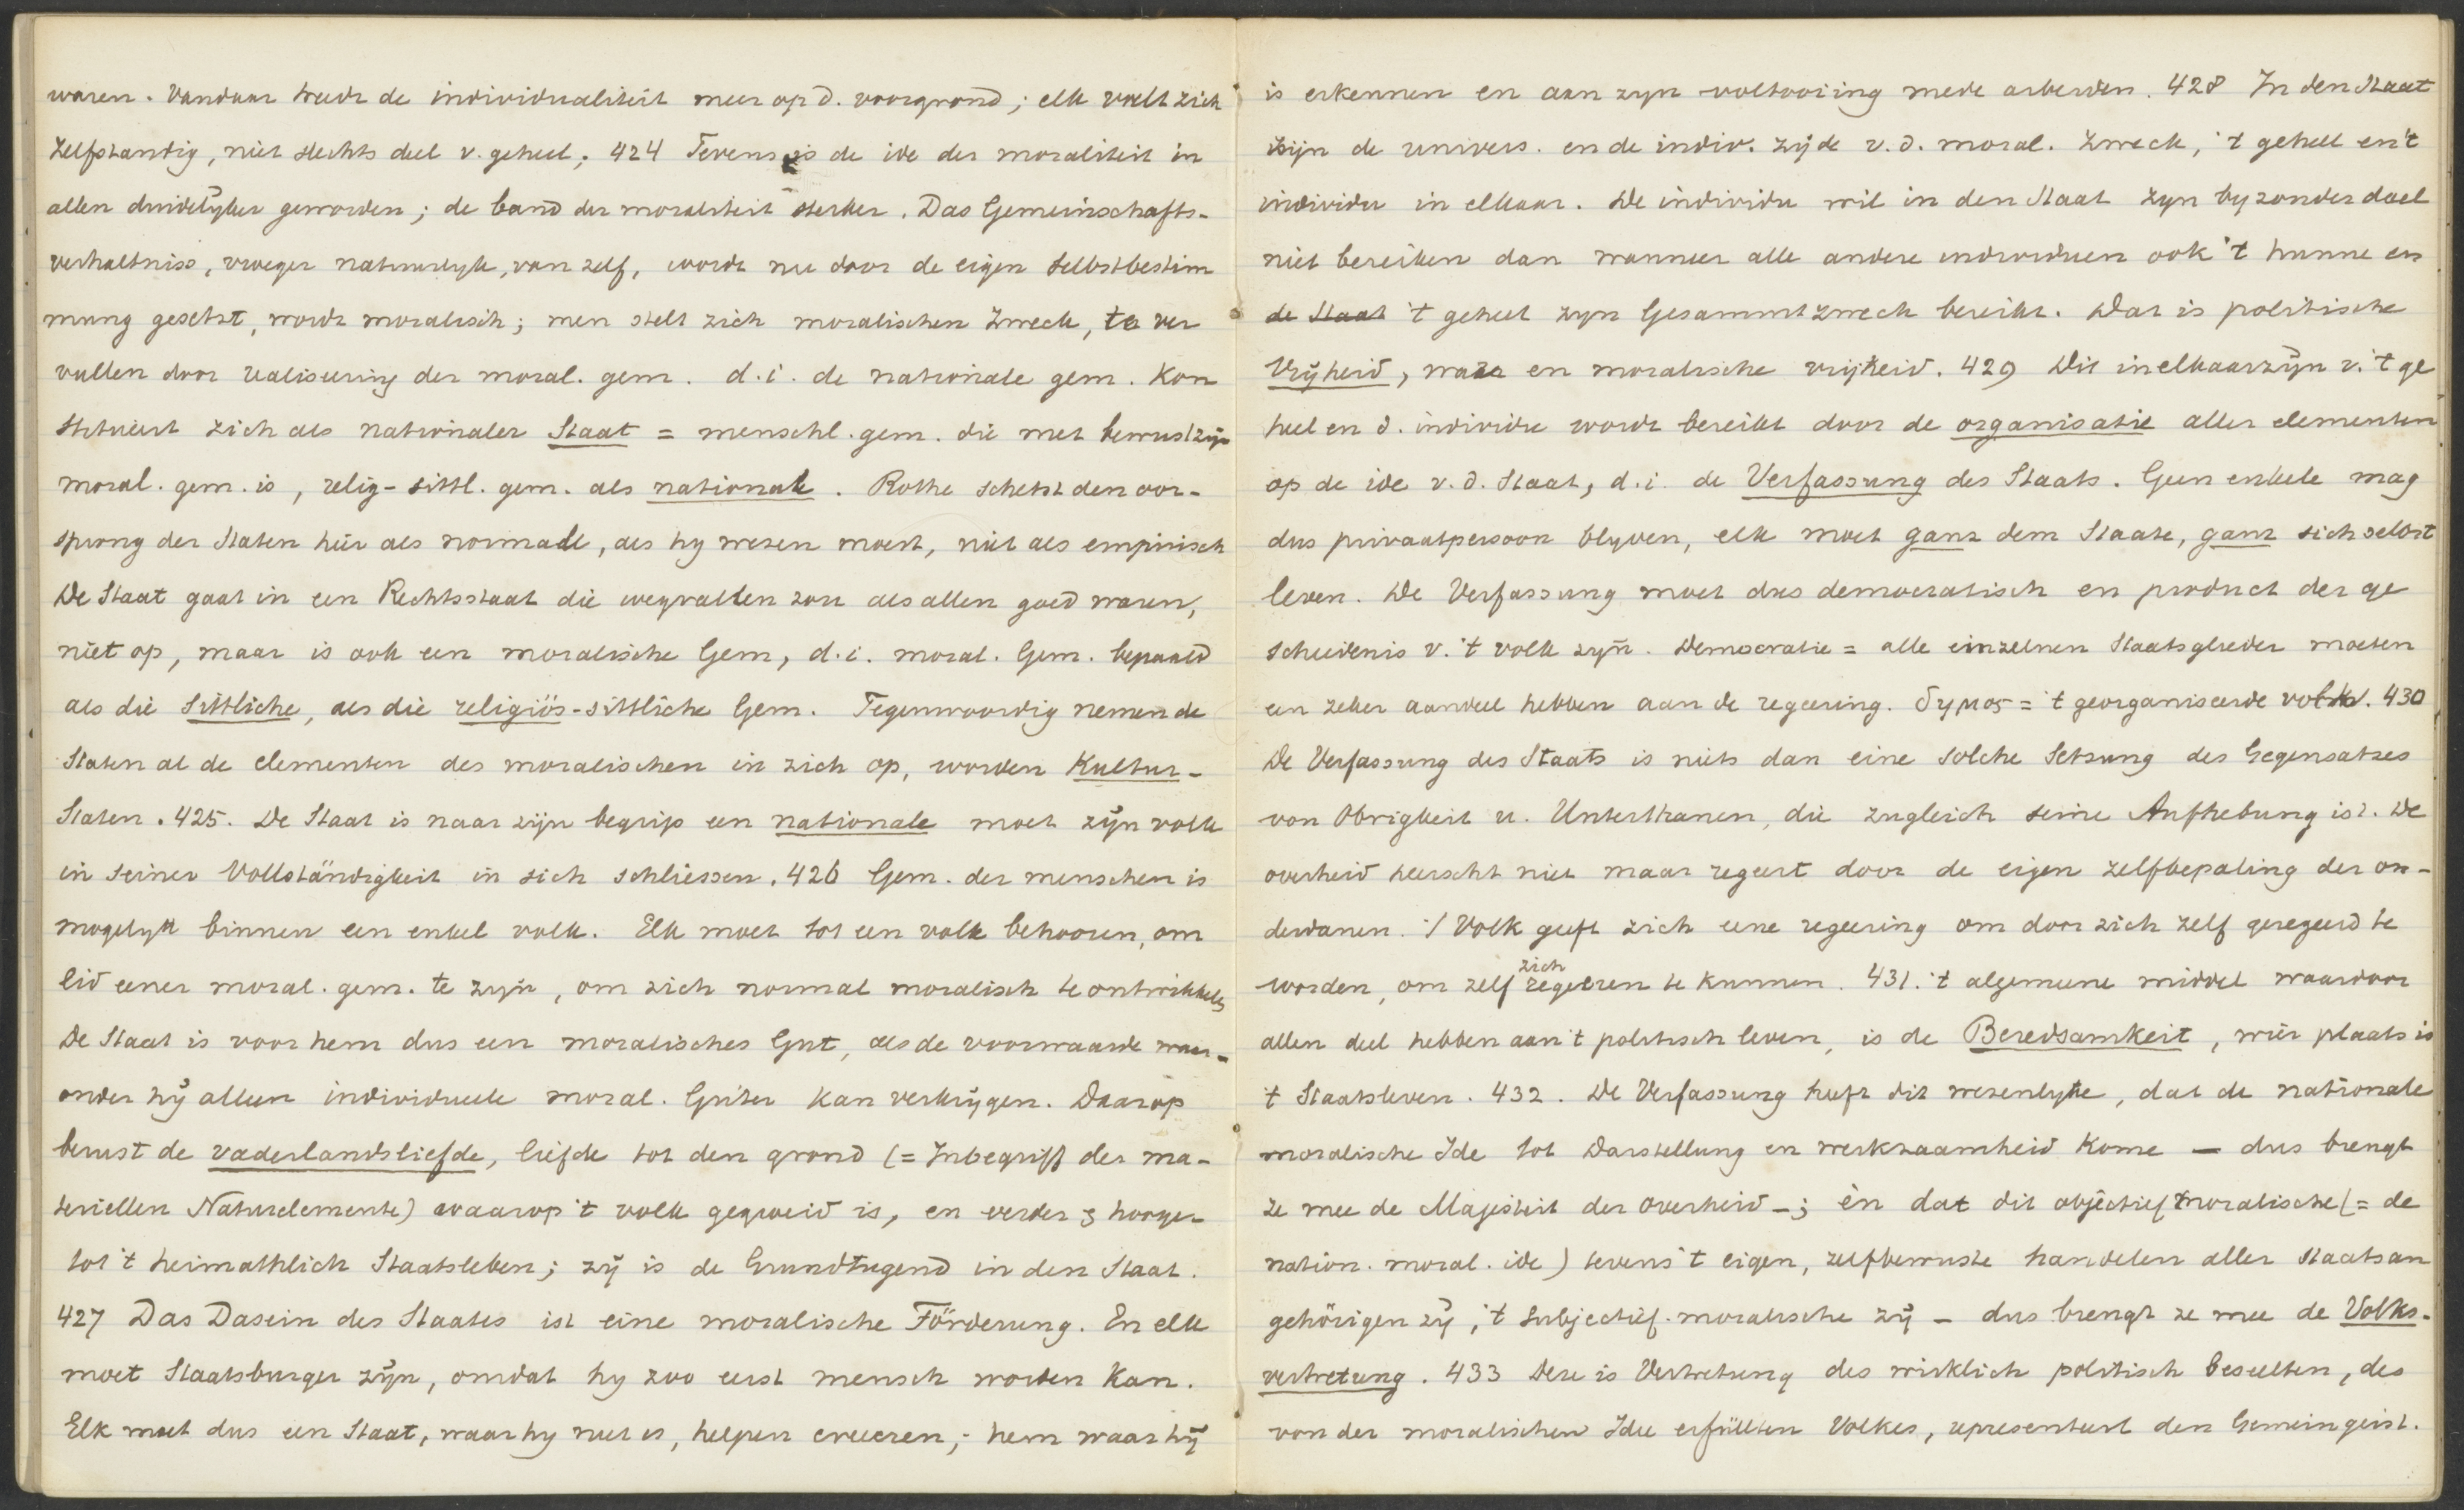 waren. Vandaar treedt de individualiteit meer op d. voorgrond; elk voelt zich
zelfstandig, niet slechts deel v. geheel; 424 Tevens is de ide der moraliteit in
allen duidelyker geworden; de band der moraliteit sterker. Das Gemeinschafts-
verhaltniss, vroeger natuurlyk, van zelf, wordt nu door de eigen Selbstbestim
mung gesetzt, wordt moralisch; men stelt zich moralischen Zweck, te ver
vullen door realiseering der moral. gem. d.i. de nationale gem. Kon
stitueert zich als nationaler Staat = menschl. gem. die met bewustzijn
moral. gem. is, relig-sittl. gem. als nationale. Rothe schetst den oor-
sprong der Staten hier als normaal, als hy wezen moest, niet als empirisch
De Staat gaat in een Rechtsstaat die wegvallen zou als allen goed waren,
niet op, maar is ook een moralische Gem, d.i. moral. Gem. bepaald
als die sittliche, als die religiös-sittliche Gem. Tegenwoordig nemen de
Staten al de elementen des moralischen in zich op, worden Kultur-
Staten. 425. De Staat is naar zijn begrip een nationale moet zijn volk
in seiner Vollständigkeit in sich schliessen. 426 Gem. der menschen is
mogelyk binnen een enkel volk. Elk moet tot een volk behooren, om
lid eener moral. gem. te zyn, om zich normal moralisch te ontwikkelen
De Staat is voor hem dus een moralisches Gut, als de voorwaarde waar-
onder hij alleen individueele moral. Güter kan verkrijgen. Daarop
berust de vaderlandsliefde, liefde tot den grond (= Inbegriff der ma-
teriellen Naturelemente) waarop 't volk gegroeid is, en verder & hooger
tot 't heimathlich Staatsleben; zij is de Grundtugend in den Staat.
427 Das Dasein des Staates ist eine moralische Förderung. En elk
moet Staatsburger zijn, omdat hy zoo eerst mensch worden kan.
Elk moet dus een Staat, waar hy niet is, helpen creeeren; hem waar hij
is erkennen en aan zyn voltooiing mede arbeiden. 428 In den Staat
zijn de univers. en de indiv. zijde v.d. moral. Zweck, 't geheel en 't
individu in elkaar. De individu wil in den Staat zyn byzonder doel
niet bereiken dan wanneer alle andere individuen ook 't hunne en
de Staat 't geheel zyn Gesammtzweck bereikt. Dat is politische
Vrijheid, ware en moralische vrijheid. 429 Dit inelkaarzijn v. 't ge
heel en d. individu wordt bereikt door de organisatie aller elementen
op de ide v.d. Staat, d.i. de Verfassung des Staats. Geen enkele mag
dus privaatpersoon blyven, elk moet ganz dem Staate, ganz sich selbst
leven. De Verfassung moet dus democratisch en product der ge
schiedenis v. 't volk zyn. Democratie = alle einzelnen Staatsglieder moeten
een zeker aandeel hebben aan de regeering. δημος = 't georganiseerde volk. 430
De Verfassung des Staats is niets dan eine solche Setzung des Gegensatzes
von Obrigkeit u. Unterthanen, die zugleich seine Aufhebung ist. De
overheid heerscht niet maar regeert door de eigen zelfbepaling der on-
derdanen. 't Volk geeft zich eene regeering om door zich zelf geregeerd te
worden, om zelf zich regeeren te kunnen. 431. 't algemeene middel waardoor
allen deel hebben aan 't politisch leven, is de Beredsamkeit, wier plaats is
't Staatsleven. 432. De Verfassung heeft dit wezenlyke, dat de nationale
moralische Ide tot Darstellung en werkzaamheid kome — dus brengt
ze mee de Majesteit der Overheid —; èn dat dit objectief moralische (= de
nation. moral. ide) tevens 't eigen, zelfbewuste handelen aller Staatsan
gehörigen zij, 't subjectief. moralische zij — dus brengt ze mee de Volks-
vertretung. 433 Deze is Vertretung des wirklich politisch beseelten, des
von der moralischen Idee erfüllten Volkes, representeert den Gemeingeist.